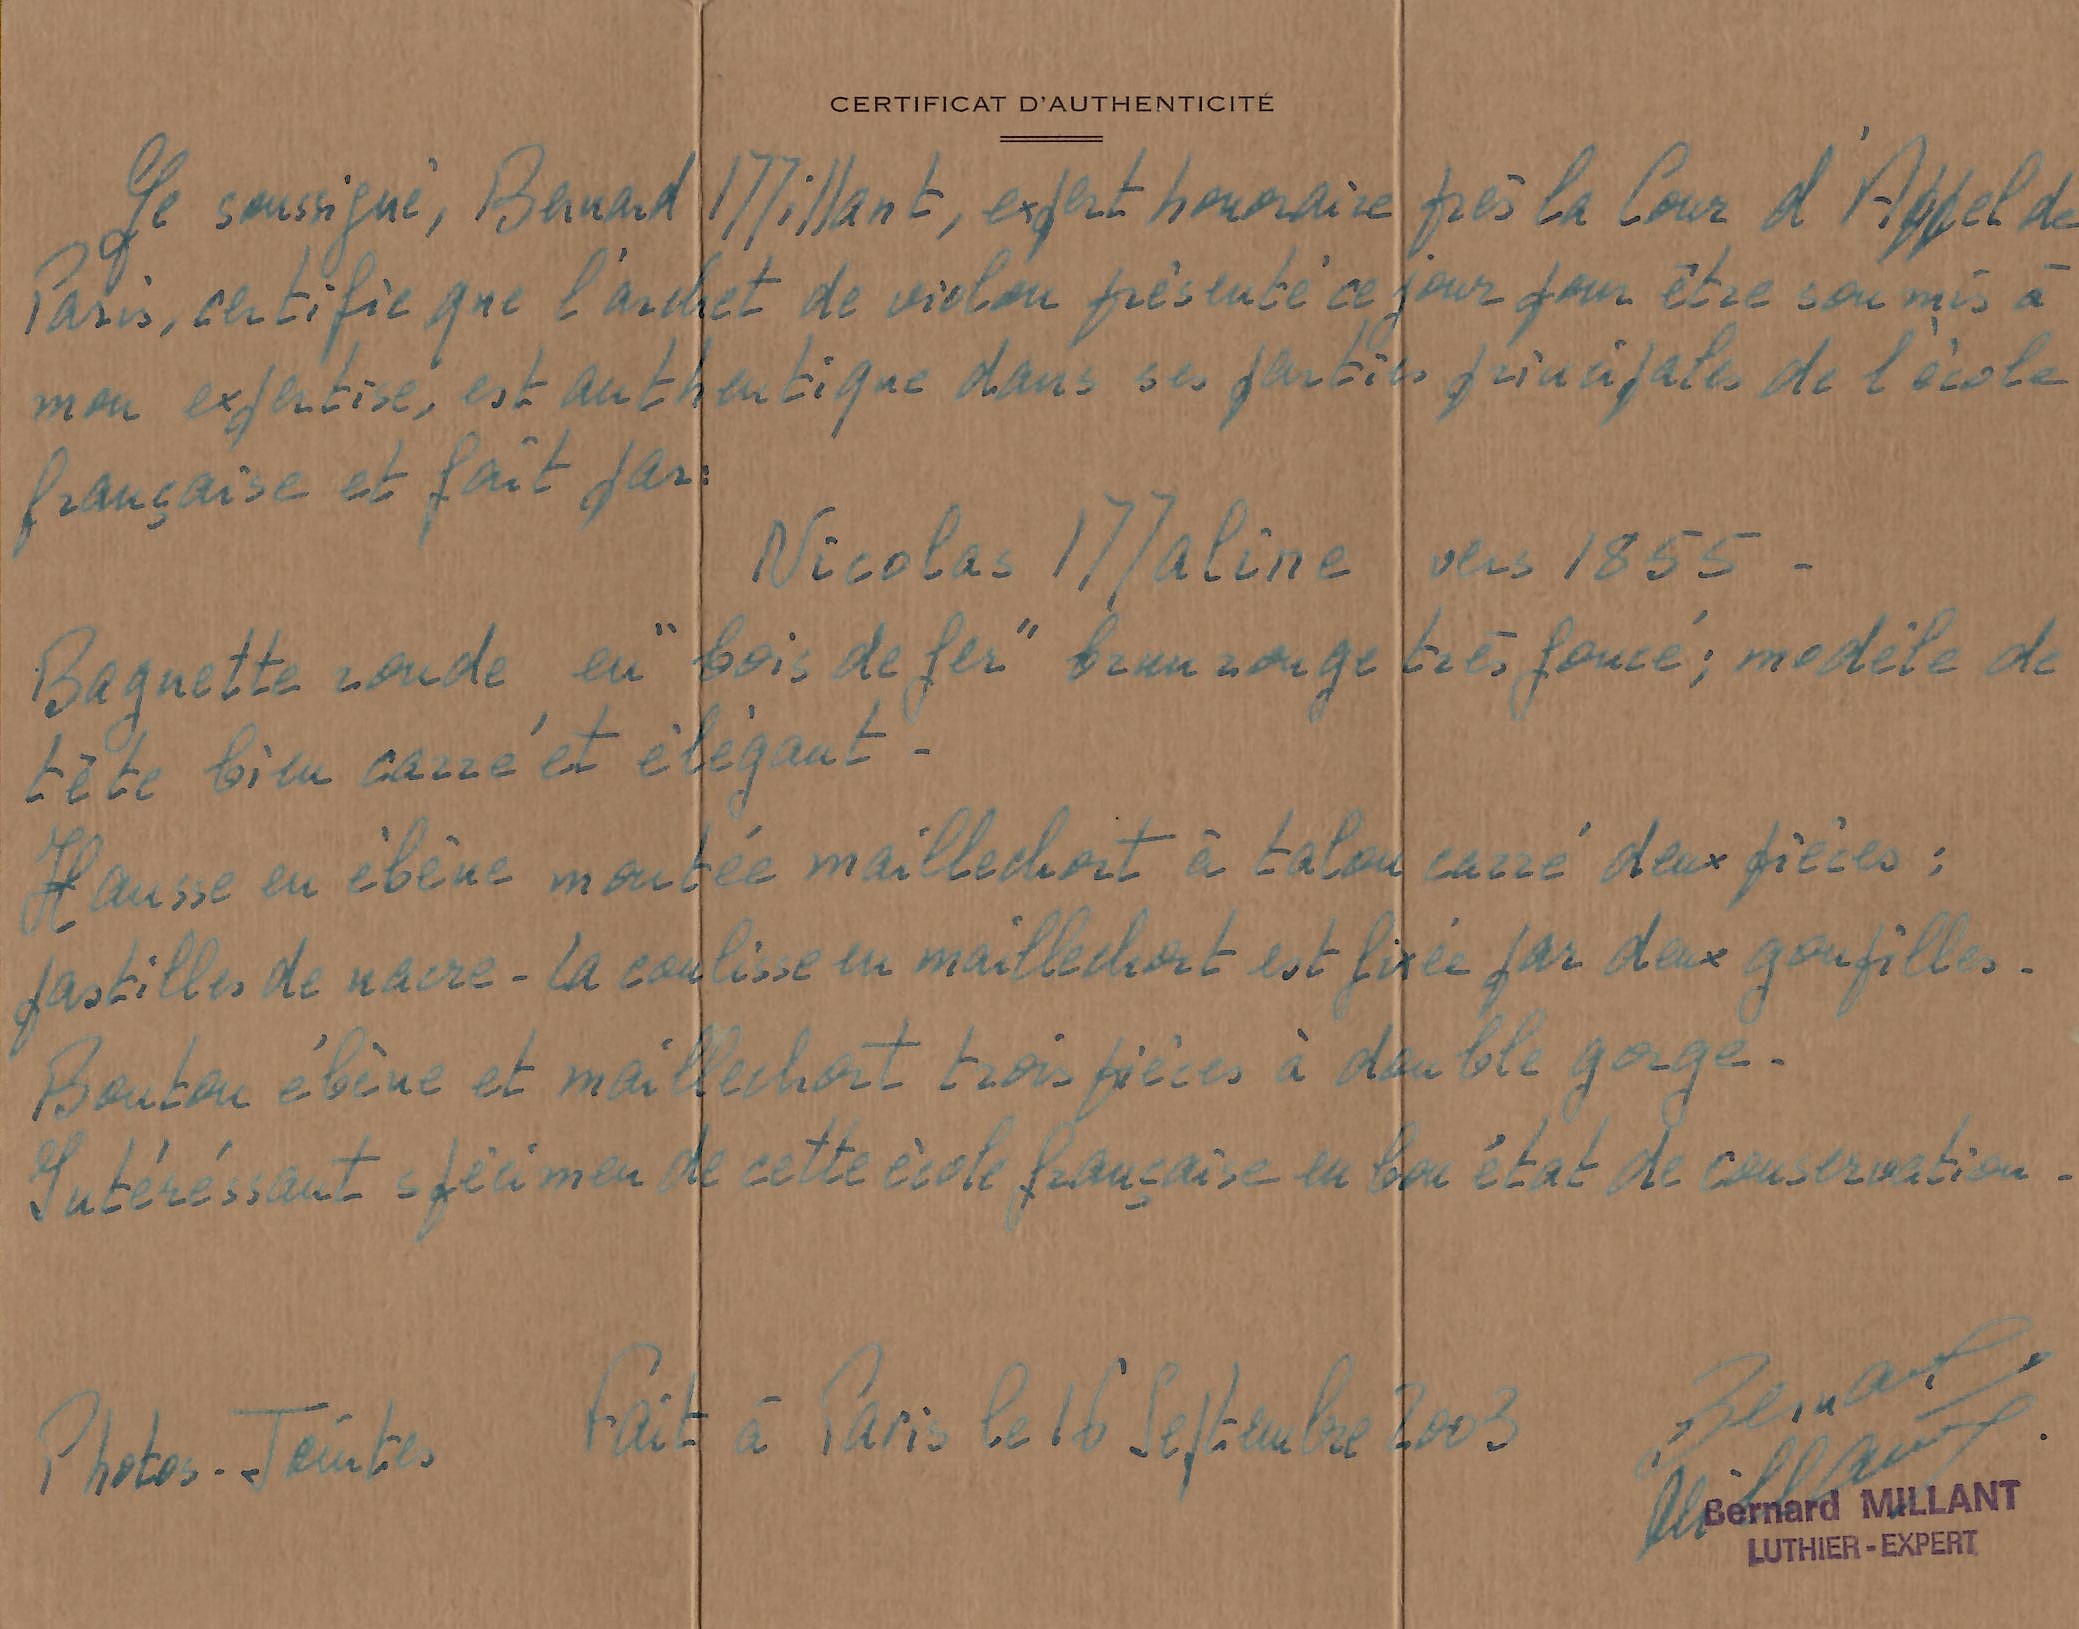 CERTIFICAT D'AUTHENTICITÉ
Je soussigné, Bernard Millant, expert honoraire près la Cour d'Appel de
Paris, certifie que l'archet de violon présenté ce jour pour être soumis à
mon expertise, est authentique dans ses parties principales de l'école
française et fait par:
Nicolas Maline vers 1855 -
Baguette ronde en "bois de fer" brun rouge très foncé; modèle de
tête bien carré et élégant -
Hausse en ébène montée maillechort à talon carré deux pièces;
pastilles de nacre - la coulisse en maillechort est fixée par deux goupilles.
Bouton ébène et maillechort trois pièces à double gorge -
Intéréssant spécimen de cette école française en bon état de conservation -
Photos - Jointes Fait à Paris le 16 Septembre 2003
Bernard
Millant
Bernard MILLANT
LUTHIER - EXPERT